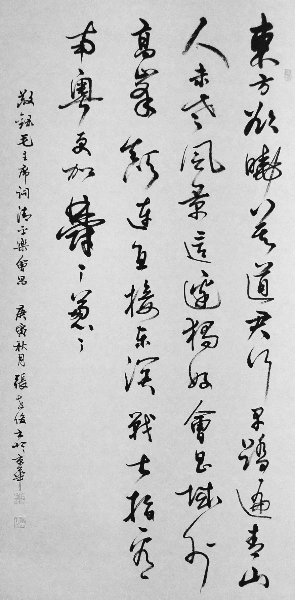 東方欲曉莫道君行早踏遍青山
人未老風景這邊獨好會昌城外
高峯顛連直接東溟戰士指看
南粵更加鬱々葱々
敬錄毛主席詞清平樂會昌 庚寅秋月張俊書於京華